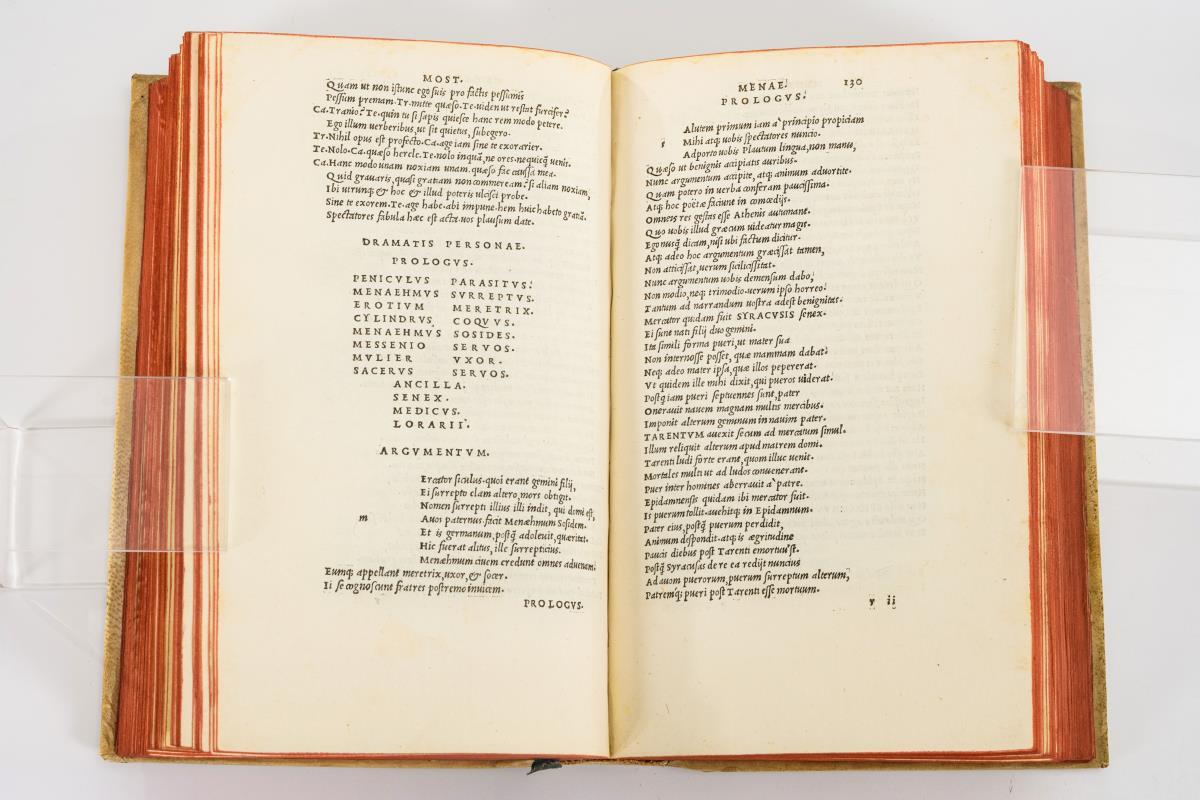 MOST.
Quam ut non istunc ego suis pro factis pessimis
Pessum premam. Tr. mitte quæso. Te. uiden ut restat furcifer?
Ca. Tranio? Te. quin tu si sapis quiesce hanc rem modo petere.
Ego illum uerberibus, ut sit quietus, subegero.
Tr. Nihil opus est profecto. Ca. age iam sine te exorarier.
Te. Nolo. Ca. quæso hercle. Te. nolo inquā, ne ores. nequicq̄ uenit.
Ca. Hanc modo unam noxiam unam. quæso fac caussa mea.
Quid grauaris, quasi gratiam non commeream? si aliam noxiam,
Ibi utrunq; & hoc & illud poteris ulcisci probe.
Sine te exorem. Te. age habe. abi impune. hem huic habeto gratiā.
Spectatores fabula hæc est acta. uos plausum date.
DRAMATIS PERSONAE.
PROLOGVS.
PENICVLVS PARASITVS.
MENAEHMVS SVRREPTVS.
EROTIVM MERETRIX.
CYLINDRVS COQVVS.
MENAEHMVS SOSIDES.
MESSENIO SERVOS.
MVLIER VXOR.
SACERVS SERVOS.
ANCILLA.
SENEX.
MEDICVS.
LORARII.
ARGVMENTVM.
m
Ercator siculus. quoi erant gemini filij,
Ei surrepto clam altero, mors obtigit.
Nomen surrepti illius illi indit, qui domi est,
Auos paternus. facit Menæhmum Sosidem.
Et is germanum, postq̄ adoleuit, quæritat.
Hic fuerat alitus, ille surrepticius.
Menæhmum ciuem credunt omnes aduenam.
Eumq; appellant meretrix, uxor, & socer.
Ii se cognoscunt fratres postremo inuicem.
PROLOGVS.
MENAE. 130
PROLOGVS.
s
Alutem primum iam a' principio propiciam
Mihi atq; uobis spectatores nuncio.
Adporto uobis Plautum lingua, non manu,
Quæso ut benignis accipiatis auribus.
Nunc argumentum accipite, atq; animum aduortite.
Quam potero in uerba conferam paucissima.
Atq; hoc poëtæ faciunt in comœdijs.
Omneis res gestas esse Athenis autumant.
Quo uobis illud græcum uideatur magis.
Ego nusq̄ dicam, nisi ubi factum dicitur.
Atq; adeo hoc argumentum græcissat tamen,
Non atticissat, uerum sicilicissitat.
Nunc argumentum uobis demensum dabo,
Non modio, neq; trimodio. uerum ipso horreo.
Tantum ad narrandum uostra adest benignitas.
Mercator quidam fuit SYRACUSIS senex.
Ei sunt nati filij duo gemini.
Ita simili forma pueri, ut mater sua
Non internosse posset, quæ mammam dabat.
Neq; adeo mater ipsa, quæ illos pepererat.
Vt quidem ille mihi dixit, qui pueros uiderat.
Postq̄ iam pueri septuennes sunt, pater
Onerauit nauem magnam multis mercibus.
Imponit alterum geminum in nauim pater.
TARENTVM auexit secum ad mercatum simul.
Illum reliquit alterum apud matrem domi.
Tarenti ludi forte erant, quom illuc uenit.
Mortales multi ut ad ludos conuenerant.
Puer inter homines aberrauit a' patre.
Epidamnensis quidam ibi mercator fuit.
Is puerum tollit. auehitq; in Epidamnum.
Pater eius, postq̄ puerum perdidit,
Animum despondit. atq; is ægritudine
Paucis diebus post Tarenti emortuu'st.
Postq̄ Syracusas de re ea redijt nuncius
Ad auom puerorum, puerum surreptum alterum,
Patremq; pueri post Tarenti esse mortuum.
y ii